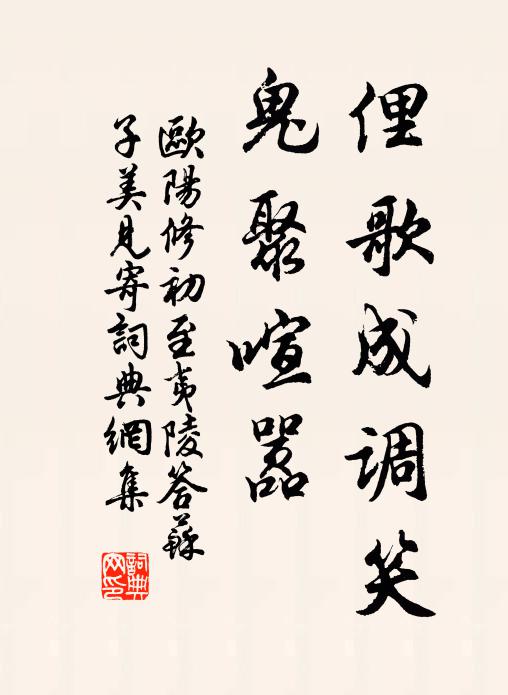 俚歌成调笑
鬼聚喧嚣
歐陽修初至夷陵答蘇
子美見寄詞典網集
詞典
网印